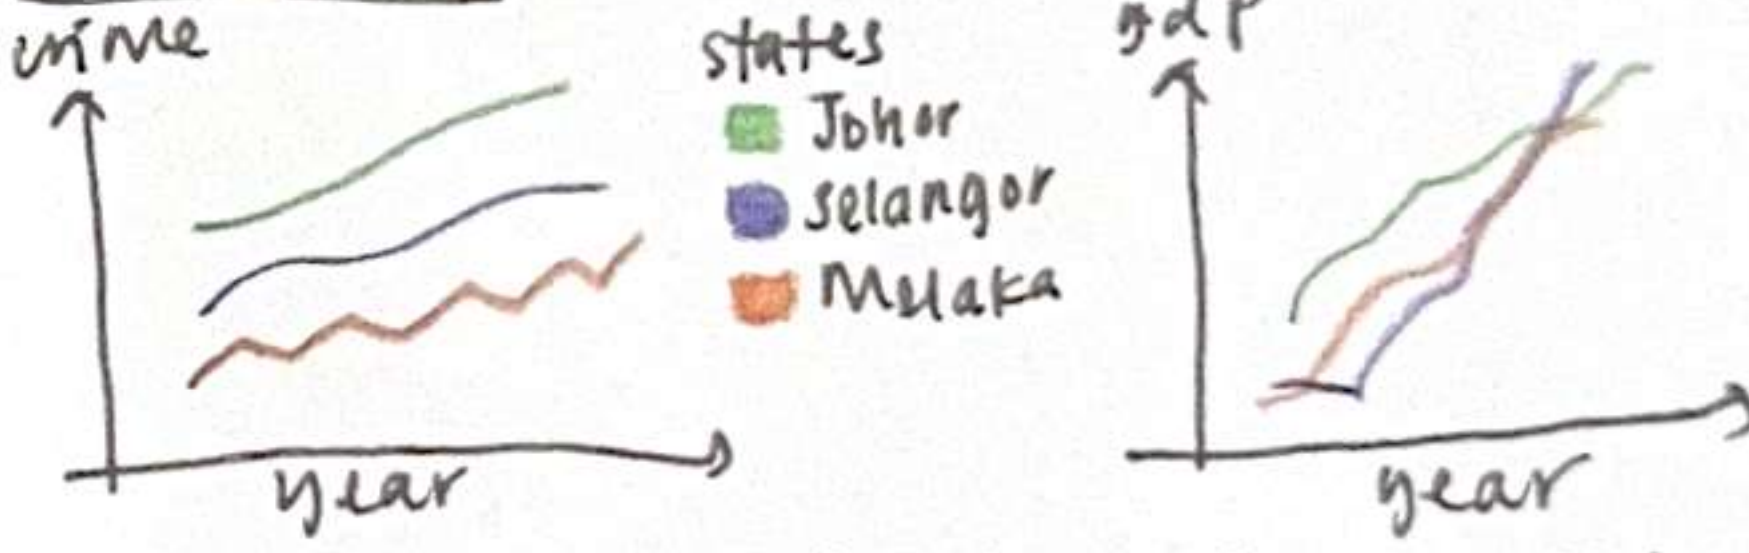 crime
year
states
Johor
selangor
Melaka
gdp
year